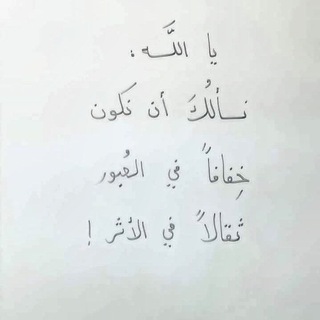 يا اللَّه :
نسألُكَ أن نكون
خِفافاً في العُبور
ثقالاً في الأثر !